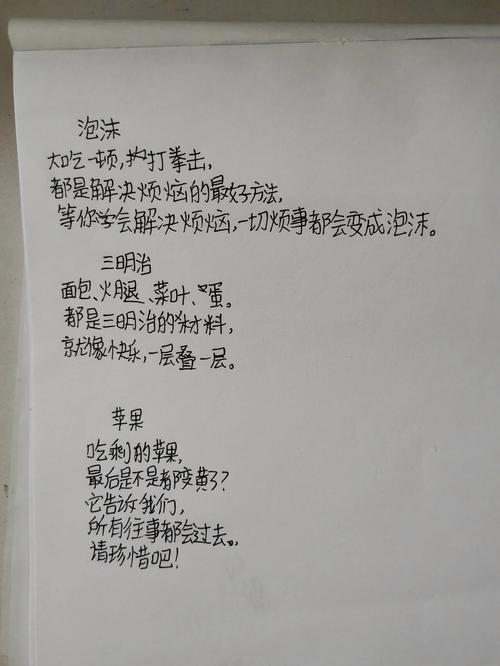 泡沫
大吃一顿,打拳击,
都是解决烦恼的最好方法,
等你学会解决烦恼,一切烦事都会变成泡沫。
三明治
面包、火腿、菜叶、蛋。
都是三明治的材料,
就像快乐,一层叠一层。
苹果
吃剩的苹果,
最后是不是都变黄了?
它告诉我们,
所有往事都会过去。
请珍惜吧!